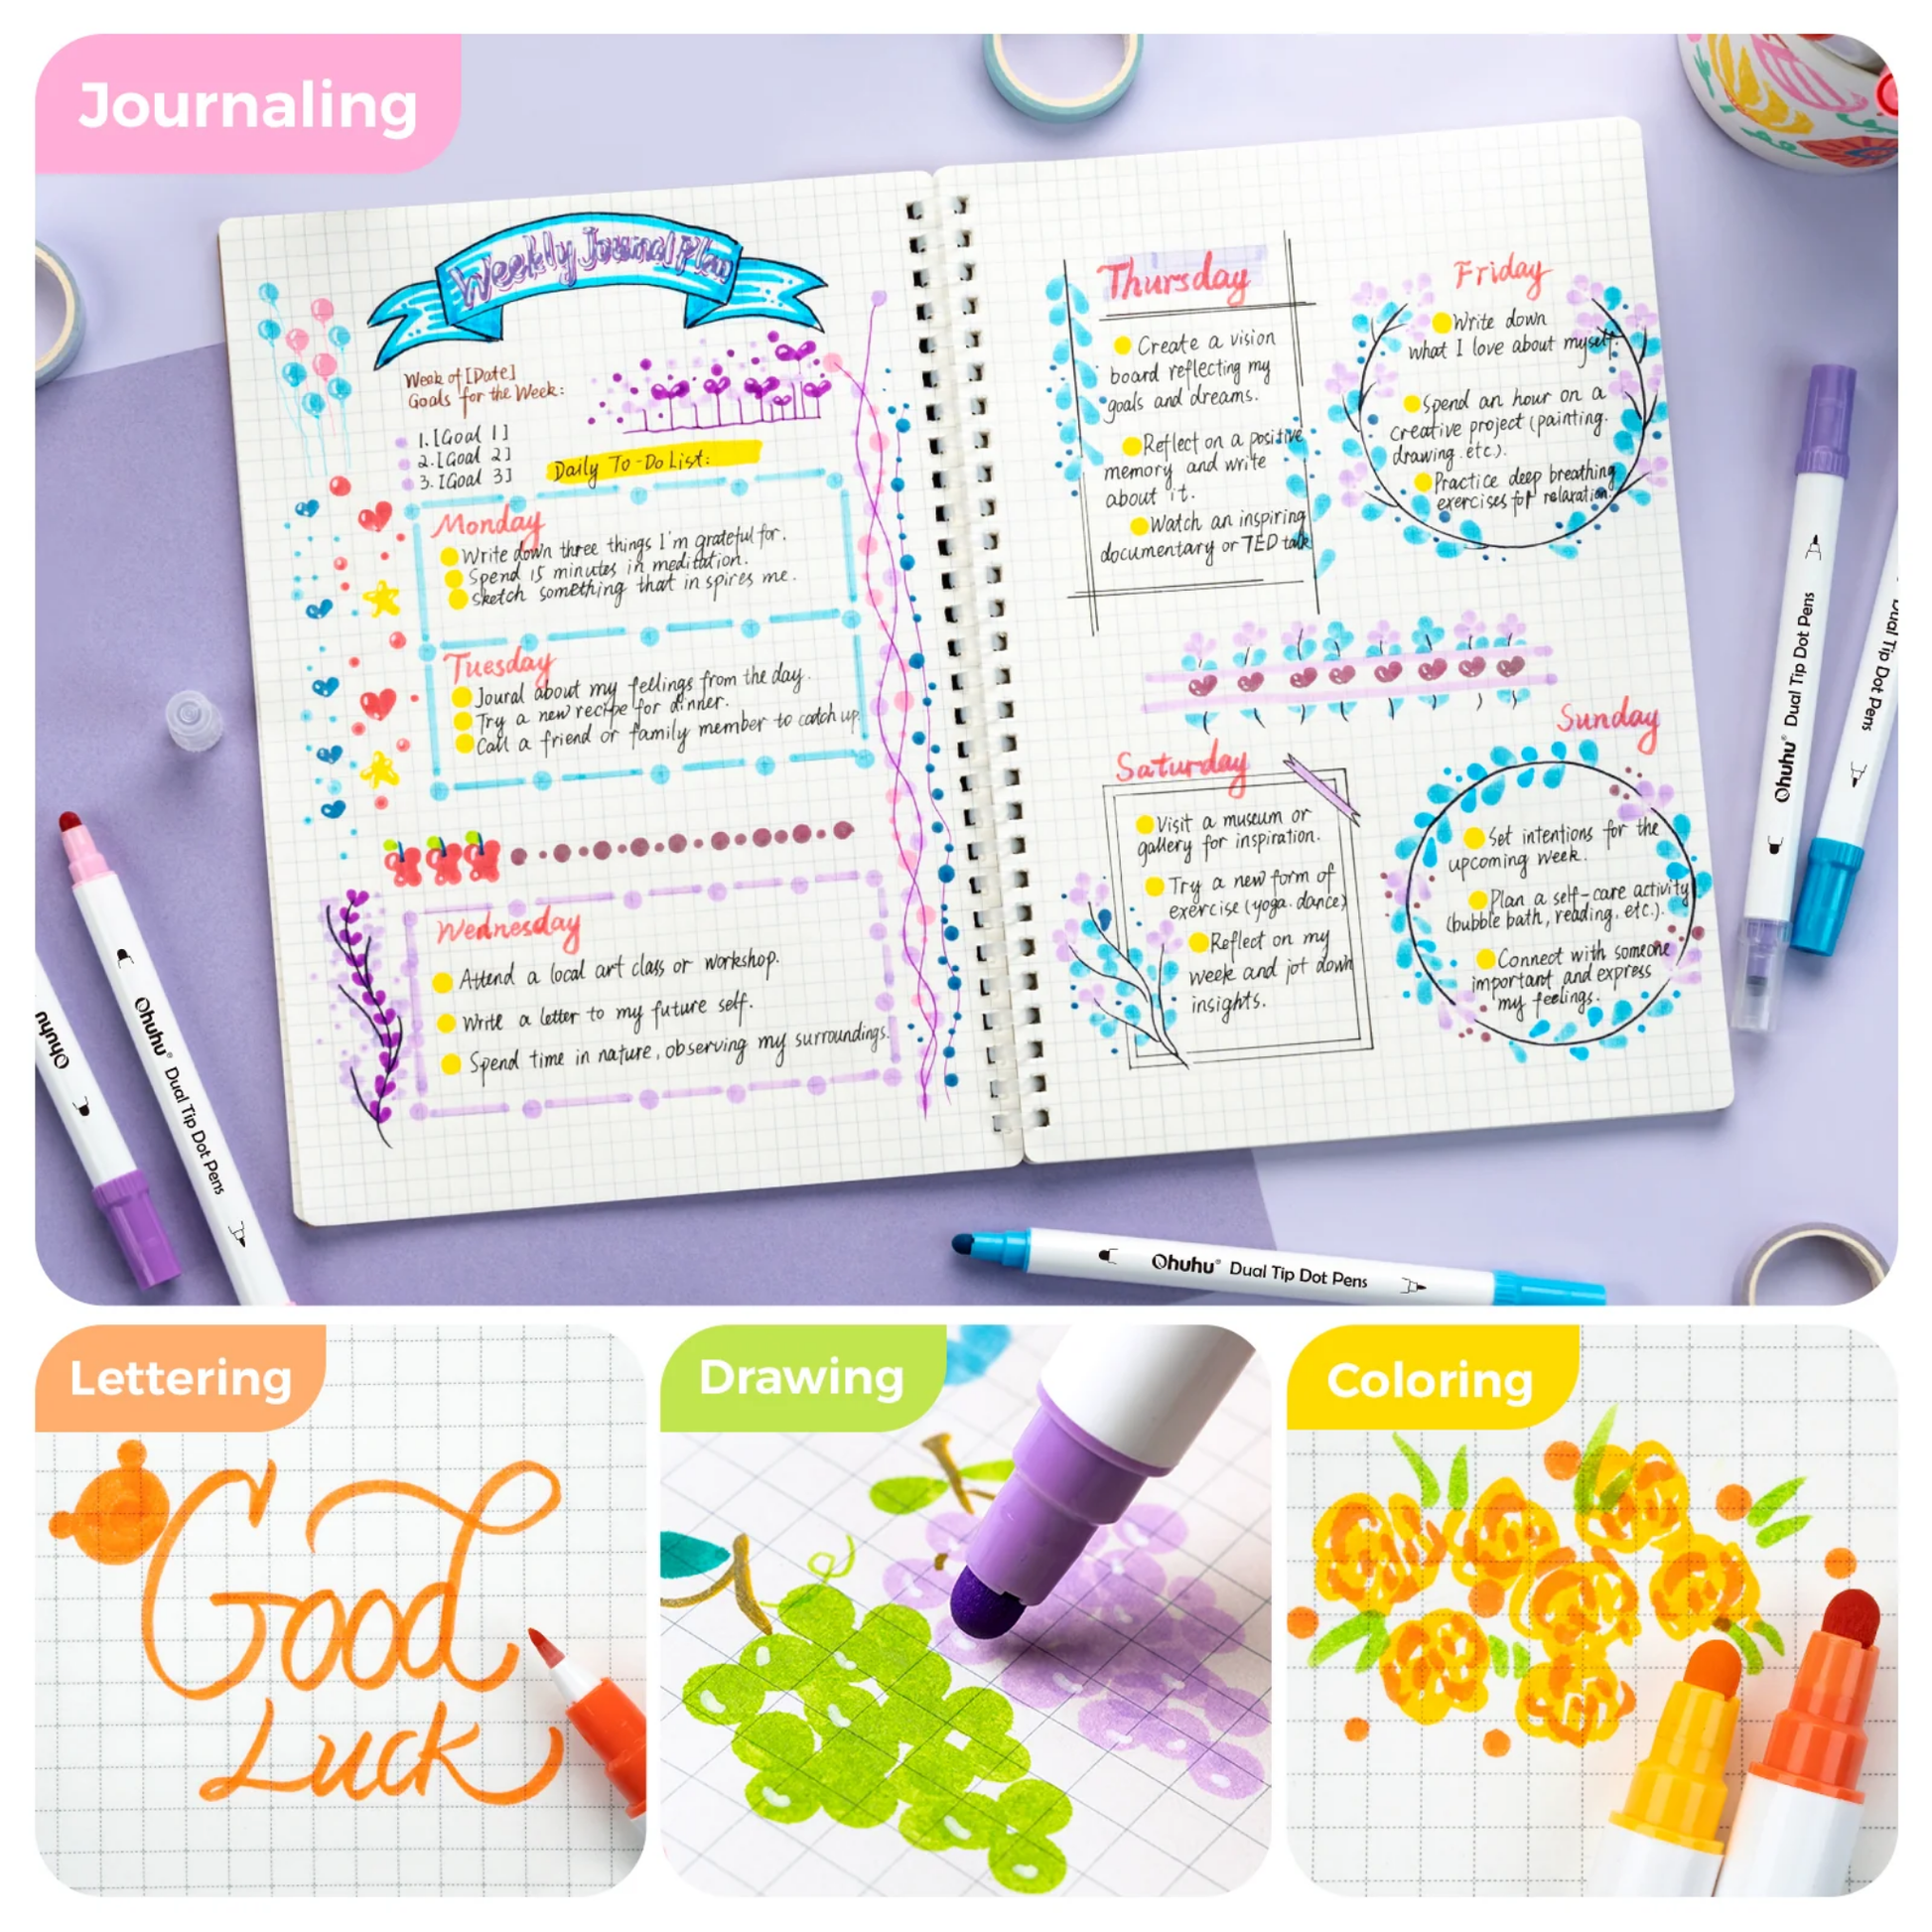 Journaling
Weekly Journal Plan
Week of [Date]
Goals for the Week:
1.[Goal 1]
2.[Goal 2]
3.[Goal 3]
Daily To-Do List:
Monday
Write down three things I'm grateful for.
Spend 15 minutes in meditation.
Sketch something that in spires me.
Tuesday
Joural about my feelings from the day.
Try a new recipe for dinner.
Call a friend or family member to catch up.
Wednesday
Attend a local art class or workshop.
Write a letter to my future self.
Spend time in nature, observing my surroundings.
Thursday
Create a vision
board reflecting my
goals and dreams.
Reflect on a positive
memory and write
about it.
Watch an inspiring
documentary or TED talk
Friday
Write down
what I love about myself.
Spend an hour on a
creative project (painting.
drawing.etc.).
Practice deep breathing
exercises for relaxation.
Saturday
Visit a museum or
gallery for inspiration.
Try a new form of
exercise (yoga.dance)
Reflect on my
week and jot down
insights.
Sunday
Set intentions for the
upcoming week.
Plan a self-care activity
(bubble bath, reading, etc.).
Connect with someone
important and express
my feelings.
Ohuhu
Ohuhu® Dual Tip Dot Pens
Ohuhu® Dual Tip Dot Pens
Ohuhu® Dual Tip Dot Pens
Dual Tip Dot Pens
Lettering
Good
Luck
Drawing
Coloring